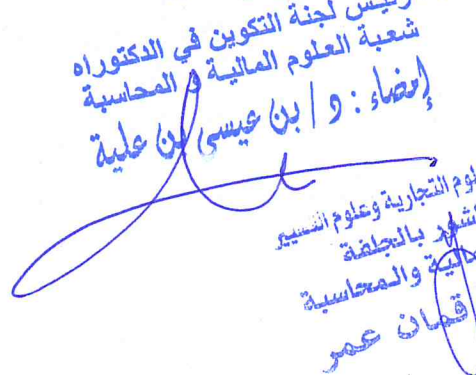 رئيس لجنة التكوين في الدكتوراه
شعبة العلوم المالية و المحاسبة
إمضاء : د / بن عيسى بن علية
لوم التجارية وعلوم التسيير
شور بالجلفة
مالية والمحاسبة
قمان عمر